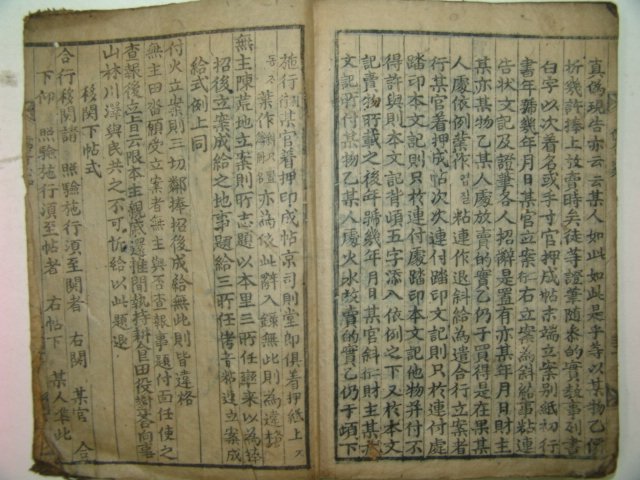 真偽現告亦云云某人如此如此是乎等以某物乙價
折幾許捧上放賣時矣徒等證筆隨叅的實敎事列書
白字以次着名或手寸官押成帖末端立案別紙初行
書年號幾年月日某官立案右立案爲斜給事粘連
告狀文記及證筆各人招辭是置有亦某年月日財主
某亦某物乙某人處放賣的實乙仍于買得是在果某
人處依例葉作粘連作退斜給爲遣合行立案者
行某官着押成帖次次連付踏印文記則只於連付處
踏印本文記則只於連付處踏印文記他物幷付不
得許與則本文記背頉五字添入依例之下又於本文
記賣物所載之後年號幾年月日某官斜 財主某亦
文記所付某物乙某人處火水放賣的實乙仍于頉下
施行 某官着押印成帖京司則堂郞俱着押紙上
葉作 亦爲依此辭入錄無此則爲違格
無主陳荒地立案則所志題以本里三所任率來以爲捧
招後立案成給之地事題給三所任侤音帶連立案成
給式例上同
付火立案則三切鄰捧招後成給無此則皆違格
無主田畓願受立案者無主與否査報事題付面任使之
査報後立旨云限本主 還推間執持耕食田役 答向事
山林川澤與民共之不可 給以此題退
移關下帖式
合行移關請 照驗施行須至關者 右關 某官 合
下仰 照驗施行須至帖者 右帖下 某人準此